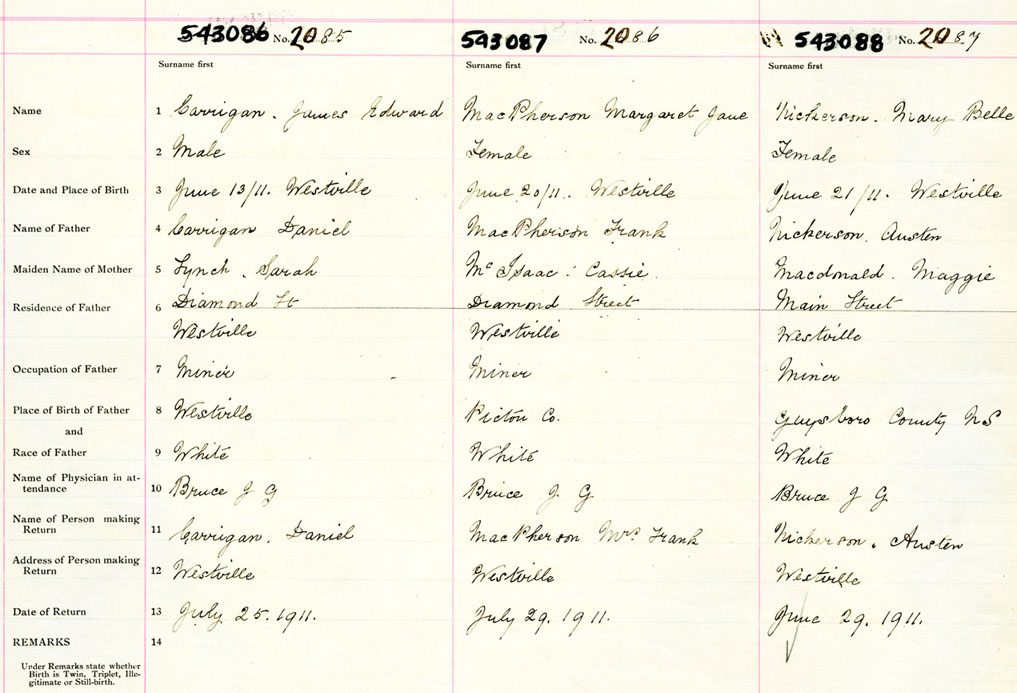 543086 No. 2085 543087 No. 2086 543088 No. 2087
Surname first Surname first Surname first
Name 1 Carrigan. James Edward MacPherson Margaret Jane Nickerson. Mary Belle
Sex 2 Male Female Female
Date and Place of Birth 3 June 13/11. Westville June 20/11. Westville June 21/11. Westville
Name of Father 4 Carrigan Daniel MacPherson Frank Nickerson. Austen
Maiden Name of Mother 5 Lynch. Sarah McIsaac: Cassie. Macdonald. Maggie
Residence of Father 6 Diamond St Diamond Street Main Street
Westville Westville Westville
Occupation of Father 7 Miner Miner Miner
Place of Birth of Father 8 Westville Pictou Co. Guysboro County NS
and
Race of Father 9 White White White
Name of Physician in at-
tendance 10 Bruce J G Bruce J G Bruce J G
Name of Person making
Return 11 Carrigan. Daniel MacPherson Mrs Frank Nickerson. Austen
Address of Person making
Return 12 Westville Westville Westville
Date of Return 13 July 25. 1911. July 29. 1911. June 29. 1911.
REMARKS 14
Under Remarks state whether
Birth is Twin, Triplet, Ille-
gitimate or Still-birth.